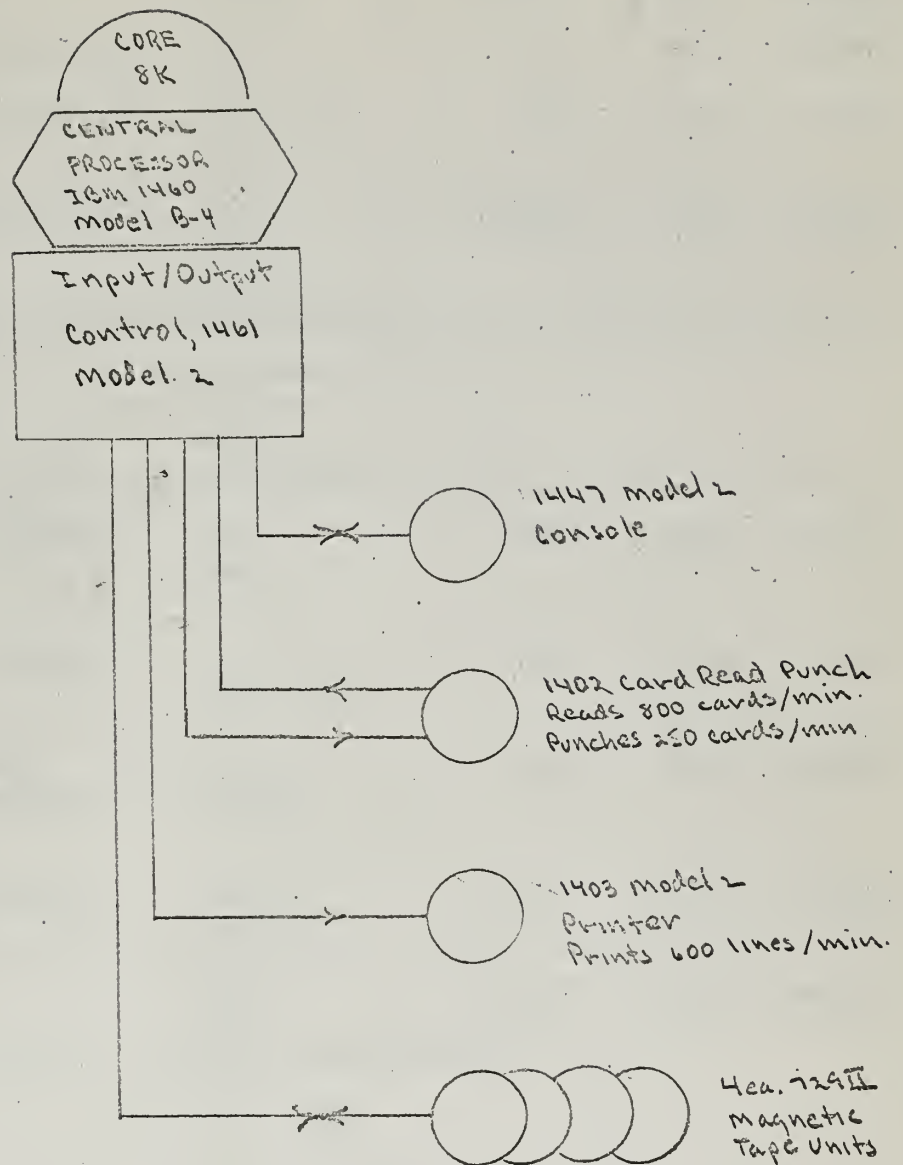 CORE
8K
CENTRAL
PROCESSOR
IBM 1460
Model B-4
Input/Output
Control, 1461
Model 2
1447 Model 2
Console
1402 Card Read Punch
Reads 800 cards/min.
Punches 250 cards/min
1403 Model 2
Printer
Prints 600 lines/min.
4ea. 729II
Magnetic
Tape Units